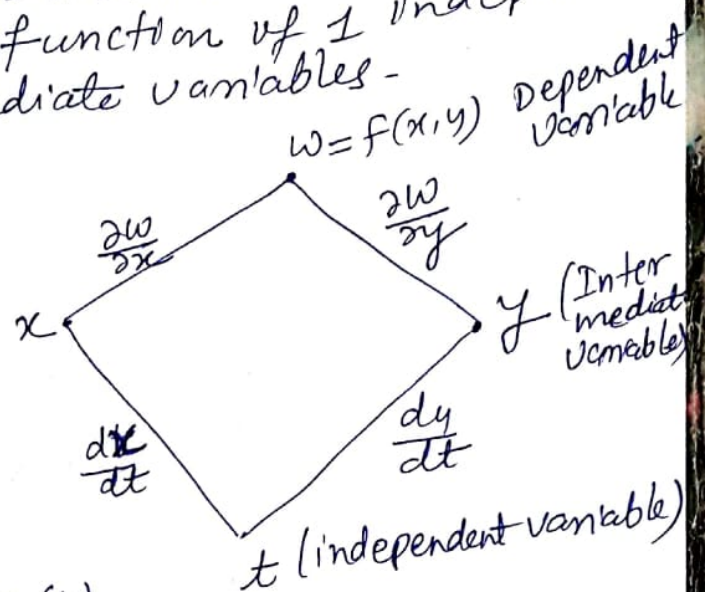 function of 1
diate variables -
w = f(x, y) Dependent
variable
∂w/∂x
∂w/∂y
x
y (Inter
mediate
variable)
dx/dt
dy/dt
t (independent variable)